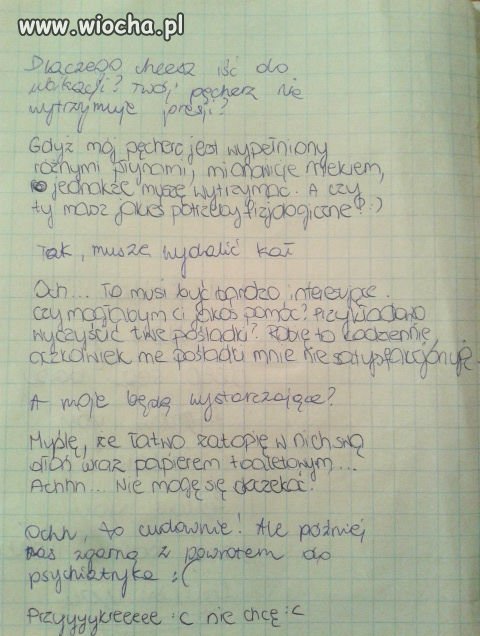 www.wiocha.pl
Dlaczego chcesz iść do
ubikacji? Twój pęcherz nie
wytrzymuje presji?
Gdyż mój pęcherz jest wypełniony
różnymi płynami, mianowicie mlekiem,
jednakże muszę wytrzymać. A czy
ty masz jakieś potrzeby fizjologiczne? :)
Tak, muszę wydalić kał
Och... To musi być bardzo interesujące.
Czy mogłabym ci jakoś pomóc? Przykładowo
wyczyścić twe pośladki? Robię to codziennie,
aczkolwiek me pośladki mnie nie satysfakcjonują.
A moje będą wystarczające?
Myślę, że łatwo zatopię w nich swą
dłoń wraz papierem toaletowym...
Achhn... Nie mogę się doczekać!
Ochh, to cudownie! Ale później
nas zgarną z powrotem do
psychiatryka :(
Przyyyykreeeee :c nie chcę :c